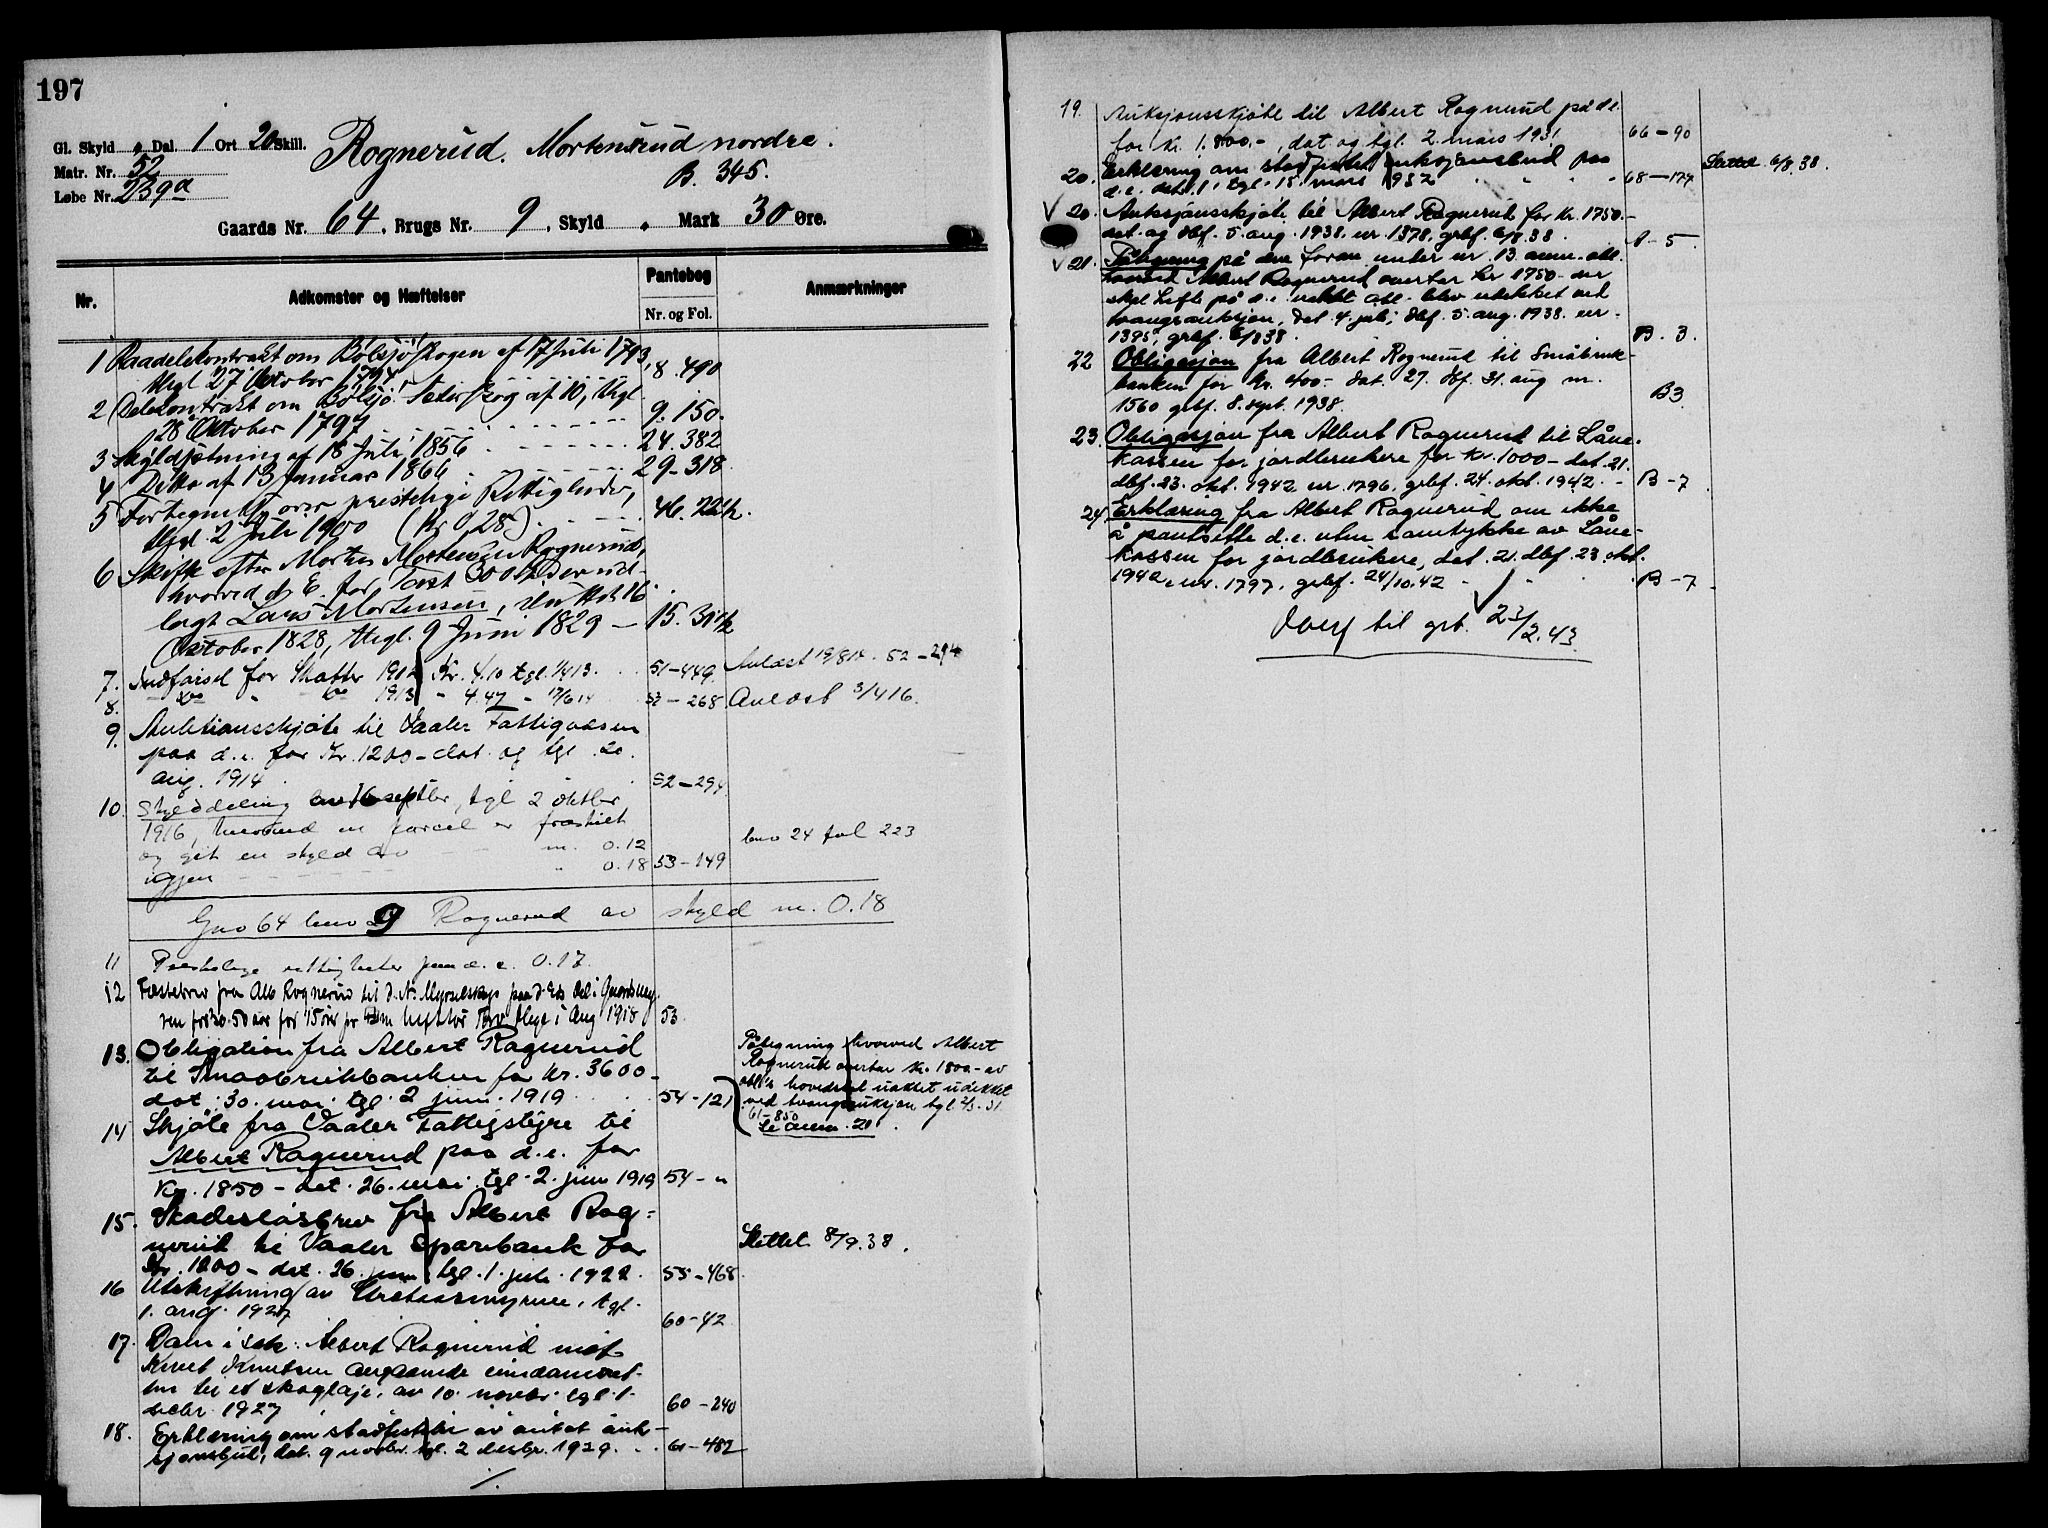 197
Gl. Skyld " Dal. 1 Ort 20 Skill.
Rognerud. Mortensrud nordre.
Matr. Nr. 52
B. 345.
Løbe Nr. 239a
Gaards Nr. 64, Brugs Nr. 9, Skyld " Mark 30 Øre.
Nr. Adkomster og Hæftelser Pantebog Nr. og Fol. Anmærkninger
1 Raadelekontrakt om Bølsjøskogen af 17 Juli 1793,
thgl 27 Oktober 1794. 8. 490
2 Delekontrakt om Bølsjø Sæterskog af 10, thgl
28 Oktober 1797 9. 150.
3 Skyldsætning af 18 Juli 1856 24. 382
4 Ditto af 13 Januar 1866 29-318
5 Fortegnelse over prestelige Rettigheder,
thgl. 2 Juli 1900 (Kr 0,28) 46. 72½.
6 Skifte efter Morten Mortensen Rognerud,
hvorved d. E. for Taxt 300 Spd er ud-
lagt Lars Mortensen, sluttet 16
Oktober 1828, thgl. 9 Juni 1829 — 15. 311½
7. Utpantning for Skatter 1912 Kr. 4.10 tgl. 1/4 13. 51-449. Avlæst 19/8 14. 52-294
8. do " do 1913 " 4.47 " 17/6 14 52-268 Avlæst 3/4 16.
9. Auktionsskjøte til Vaaler Fattigvæsen
paa d. e. for Kr. 1200 - dat. og tgl. 20.
aug. 1914 52-294
10. Skylddeling av 16 septbr, tgl 2 oktbr
1916, hvorved en parcel er fraskilt
og git en skyld av m. 0.12 bno 24 fol 223
igjen " 0.18 53-149
Gno 64 bno 9 Rognerud av skyld m. 0.18
11 Presteleige rettigheter paa d. e. 0.17.
12 Fæstebrev fra Alb Rognerud til d. N. Myrselskap paa d. Eds del i
ren for 30-50 aar for 15 øre pr i Aug 1918 53
13. Obligation fra Albert Rognerud
til Smaabrukbanken for kr. 3600-
dat. 30. mai tgl. 2 juni 1919. 54-121
Påtegning hvorved Albert
Rognerud overtar kr. 1800- av
obl's hovedstol uaktet udekket
ved tvangsauksjon tgl. 2/3-31
61-850
Se anm. 20.
14 Skjøte fra Vaaler Fattigstyre til
Albert Rognerud paa d. e. for
Kr. 1850 - dat. 26. mai. tgl. 2. juni 1919 54 - "
15. Skadesløsbrev fra Albert Rog=
nerud til Vaaler Sparebank for
Kr. 1200 - dat. 26. juni tgl. 1. juli. 1922. 55-468. Slettet 8/9.38.
16 Utskiftning av tgl.
1. aug. 1927 60-42
17. Dom i sak: Albert Rognerud mot
Knut Knutsen angaaende eiendomsret-
ten til et skogteje, av 10. novbr. tgl. 1.
decbr. 1927 60-240
18. Erklæring om stadfestelse av antat auk-
sjonsbud, dat. 9 novbr. tgl. 2 desbr. 1929. 61-482
./.
19. Auksjonsskjøte til Albert Rognerud på d. e.
for kr. 1.800.-, dat. og tgl. 2. mars 1931. 66-90
20. Erklæring om stadfestet auksjonsbud paa
d. e. dat. 1. tgl. 15. mars 1932 68-174 Slettet 6/8.38.
√ 20. Auksjonsskjøte til Albert Rognerud for kr. 1750.-
dat. og dbf. 5. aug. 1938. nr. 1378, grbf. 6/8.38. A-5.
√ 21. Påtegning på den foran under nr. 13 anm. obl.
hvorved Albert Rognerud overtar kr 1750- der
skal hefte på d. e. uaktet obl. blev udekket ved
tvangsauksjon, dat. 4. juli, dbf. 5. aug. 1938. nr.
1395, grbf. 6/8 38. B. 3.
22 Obligasjon fra Albert Rognerud til Småbruk-
banken for kr. 400.- dat. 27. dbf. 31. aug nr.
1560 grbf. 8. sept. 1938. B3
23. Obligasjon fra Albert Rognerud til Låne-
kassen for jordbrukere for kr. 1000- dat. 21.
dbf. 23. okt. 1942 nr. 1796, grbf. 24. okt. 1942. - B-7
24 Erklæring fra Albert Rognerud om ikke
å pantsette d. e. uten samtykke av Låne-
kassen for jordbrukere, dat. 21. dbf. 23. okt.
1942. nr. 1797, grbf. 24/10.42 B-7
Overf til grb. 23/2.43.